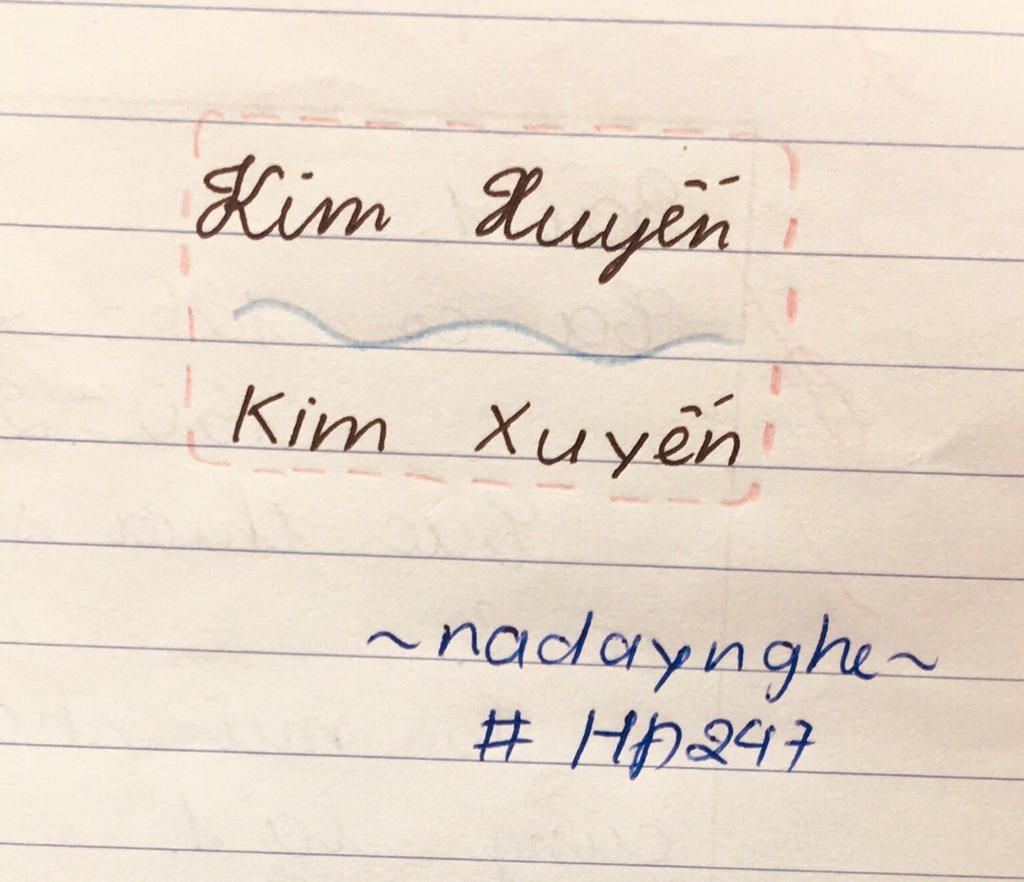 Kim Xuyến
Kim Xuyến
~nadaynghe~
# HD247